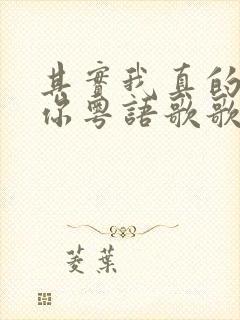 其實我真的
你粵語歌歌
菱葉